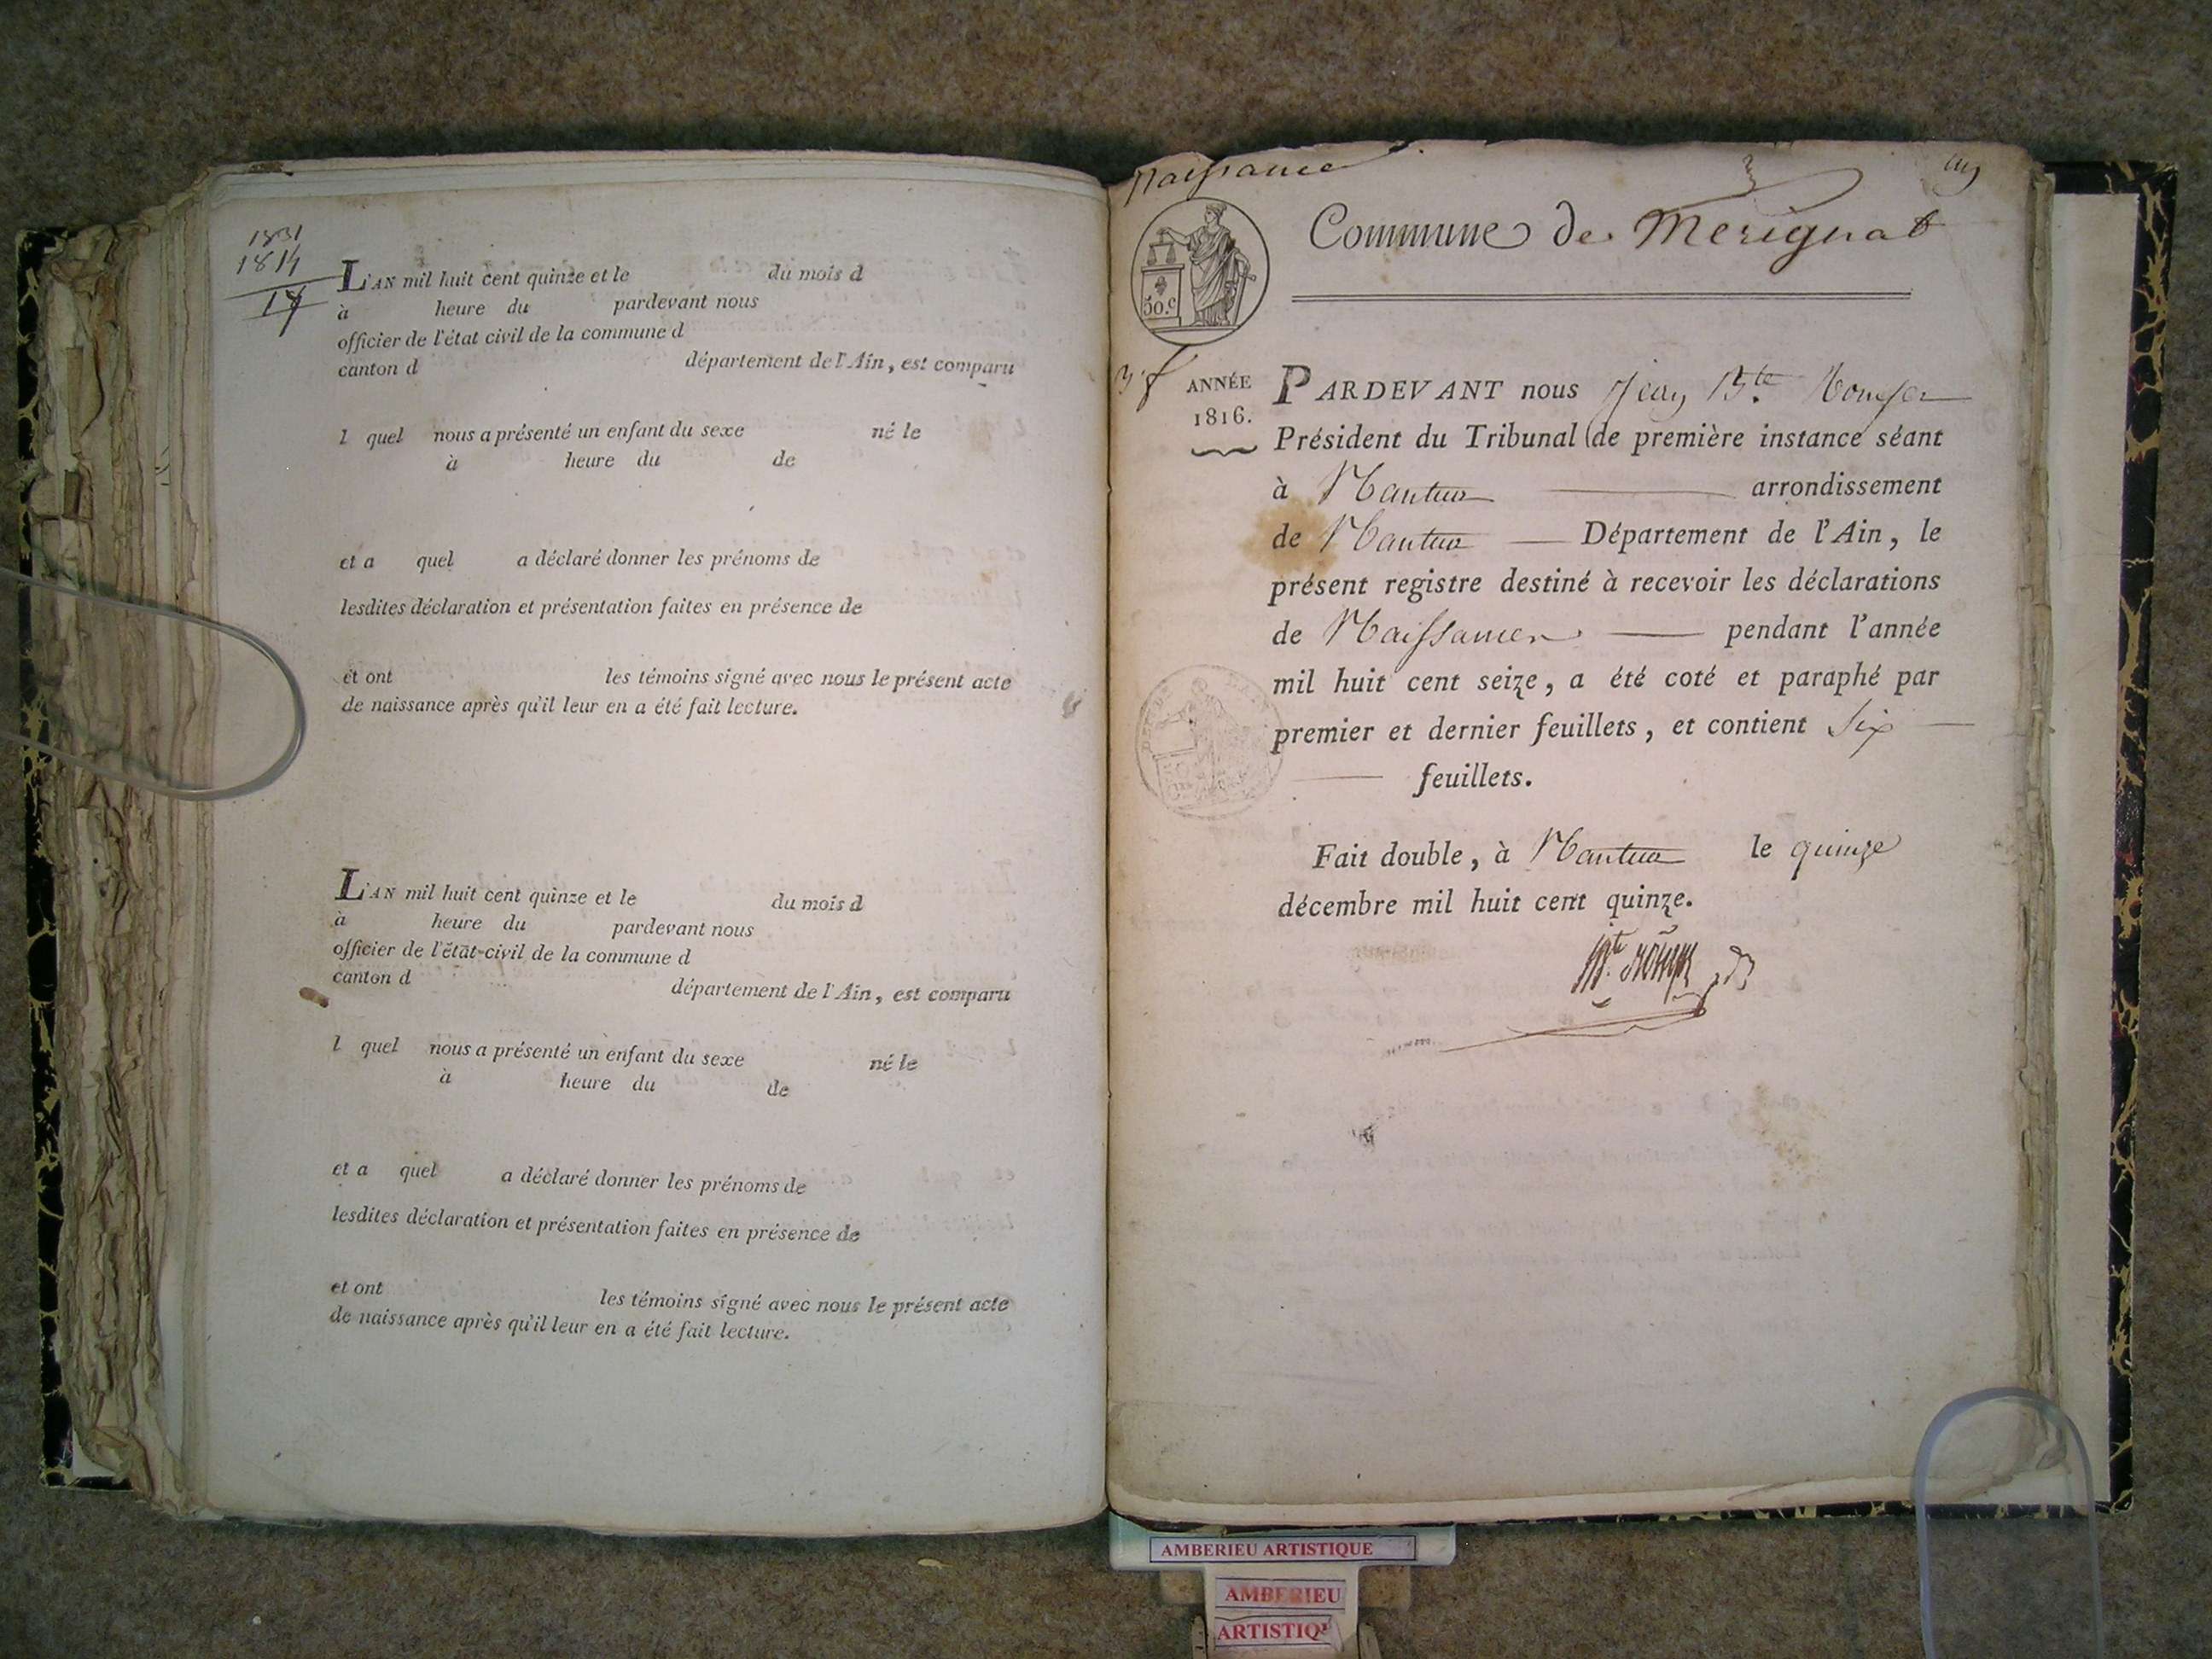 1831
1814
17
L'AN mil huit cent quinze et le du mois d
à heure du pardevant nous
officier de l'état civil de la commune d
canton d département de l'Ain, est comparu
l quel nous a présenté un enfant du sexe né le
à heure du de
et a quel a déclaré donner les prénoms de
lesdites déclaration et présentation faites en présence de
et ont les témoins signé avec nous le présent acte
de naissance après qu'il leur en a été fait lecture.
L'AN mil huit cent quinze et le du mois d
à heure du pardevant nous
officier de l'état-civil de la commune d
canton d département de l'Ain, est comparu
l quel nous a présenté un enfant du sexe né le
à heure du de
et a quel a déclaré donner les prénoms de
lesdites déclaration et présentation faites en présence de
et ont les témoins signé avec nous le présent acte
de naissance après qu'il leur en a été fait lecture.
Naissance
Commune de Merignat
50.c
ANNÉE
1816.
PARDEVANT nous Jean Bte.
Président du Tribunal de première instance séant
à Nantua arrondissement
de Nantua Département de l'Ain, le
présent registre destiné à recevoir les déclarations
de Naissances pendant l'année
mil huit cent seize, a été coté et paraphé par
premier et dernier feuillets, et contient six
feuillets.
Fait double, à Nantua le quinze
décembre mil huit cent quinze.
AMBERIEU ARTISTIQUE
AMBERIEU
ARTISTIQ